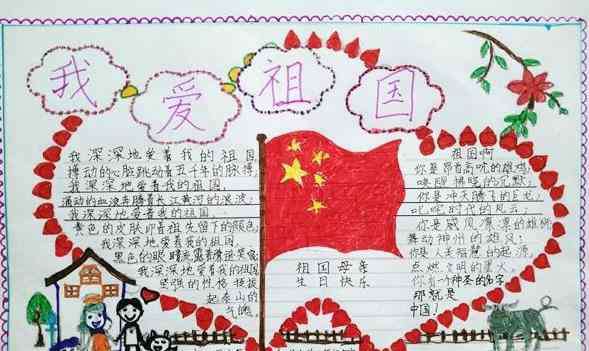 我爱祖国
我深深地爱着我的祖国,
搏动的心脏跳动着五千年的脉搏,
我深深地爱着我的祖国,
涌动的血液奔腾着长江黄河的浪波;
我深深地爱着我的祖国
黄色的皮肤印着祖先留下的颜色;
我深深地爱着我的祖国,
黑色的眼睛流露着
我深深地爱着我的祖国
坚强的性格挺拔
起泰山的
气魄;
祖国母亲
生日快乐
祖国啊
你是昂首高吭的雄鸡
唤醒拂晓的沉默
你是冲天腾飞的巨龙
叱咤时代的风云
你是威风凛凛的雄狮
舞动神州的雄
你是人类智慧的起源
点燃文明的星火
你有一个神圣的名字
那就是
中国!